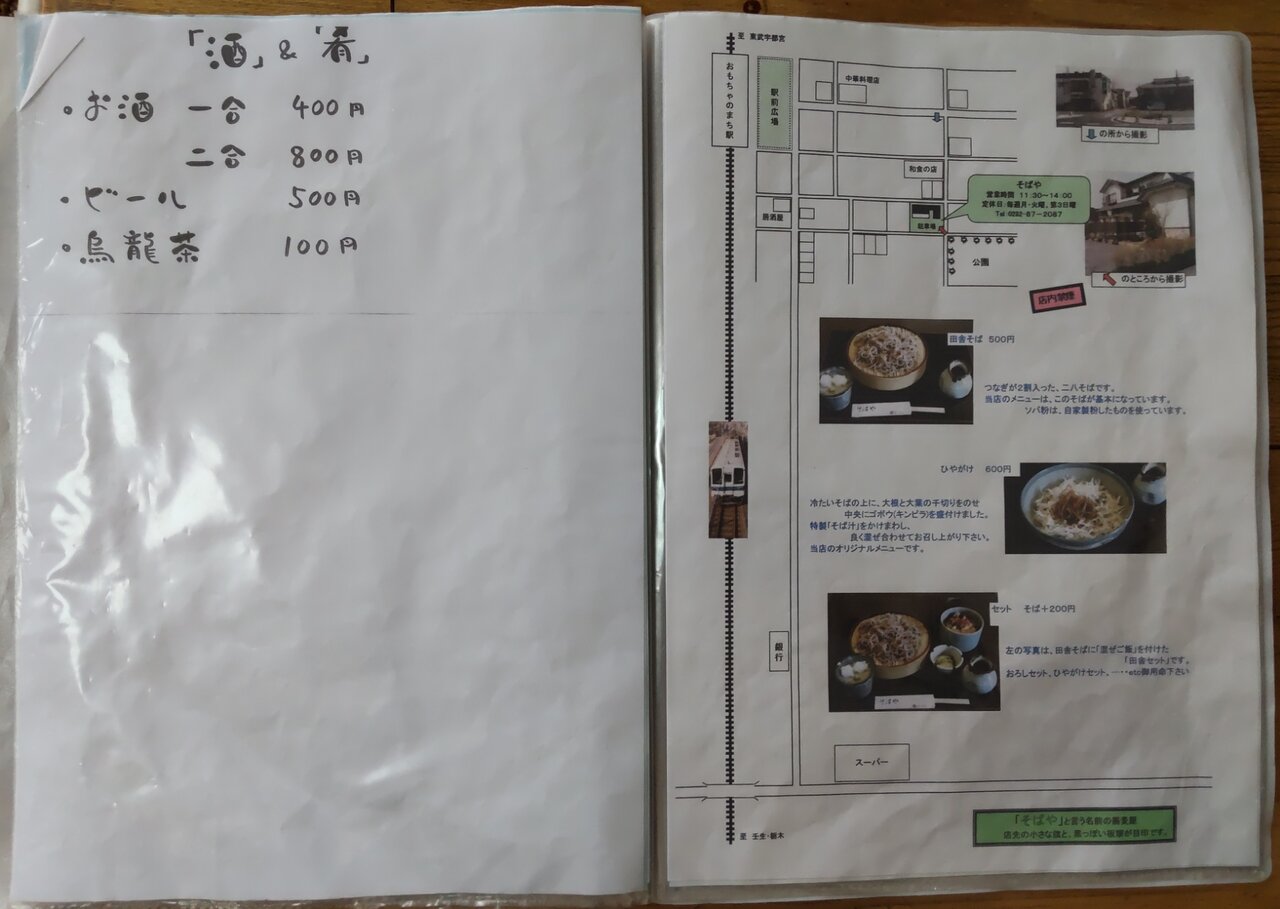 「酒」&「肴」
・お酒 一合 400円
二合 800円
・ビール 500円
・烏龍茶 100円
至 東武宇都宮
おもちゃのまち駅
駅前広場
中華料理店
の所から撮影
和食の店
そばや
営業時間 11:30~14:00
定休日:毎週月・火曜、第3日曜
Tel 0282-87-2087
居酒屋
駐車場
公園
のところから撮影
店内禁煙
田舎そば 500円
つなぎが2割入った、二八そばです。
当店のメニューは、このそばが基本になっています。
ソバ粉は、自家製粉したものを使っています。
ひやがけ 600円
冷たいそばの上に、大根と大葉の千切りをのせ
中央にゴボウ(キンピラ)を盛付けました。
特製「そば汁」をかけまわし、
良く混ぜ合わせてお召し上がり下さい。
当店のオリジナルメニューです。
セット そば+200円
左の写真は、田舎そばに「混ぜご飯」を付けた
「田舎セット」です。
おろしセット、ひやがけセット、・・・・etc御用命下さい
そばや
銀行
スーパー
至 壬生・栃木
「そばや」と言う名前の蕎麦屋
店先の小さな旗と、黒っぽい板塀が目印です。